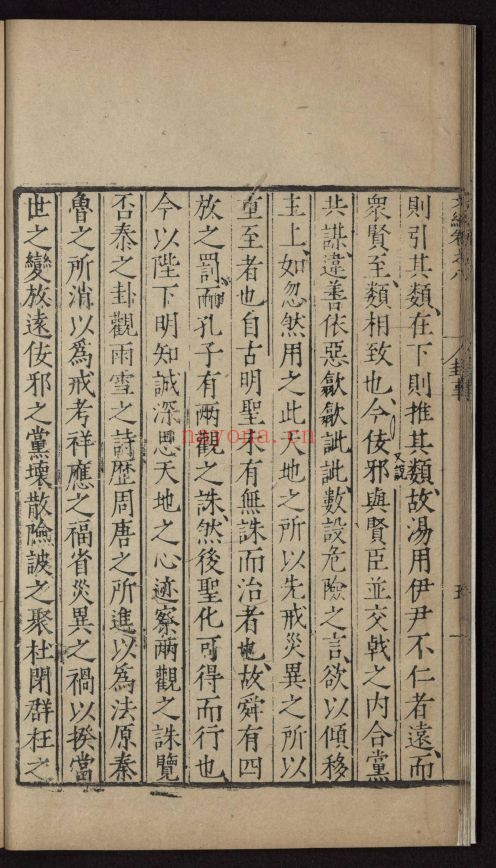 則引其類在下則推其類故湯用伊尹不仁者遠而
衆賢至類相致也今佞邪與賢臣並交戟之内合黨
又説
共謀違善依惡歙歙訿訿數設危險之言欲以傾移
主上如忽然用之此天地之所以先戒災異之所以
重至者也自古明聖未有無誅而治者也故舜有四
放之罰而孔子有兩觀之誅然後聖化可得而行也
今以陛下明知誠深思天地之心迹察兩觀之誅覽
否泰之卦觀雨雪之詩歷周唐之所進以爲法原秦
魯之所消以爲戒考祥應之福省災異之禍以揆當
世之變放遠佞邪之黨壞散險詖之聚杜閉群枉之
nayona.cn